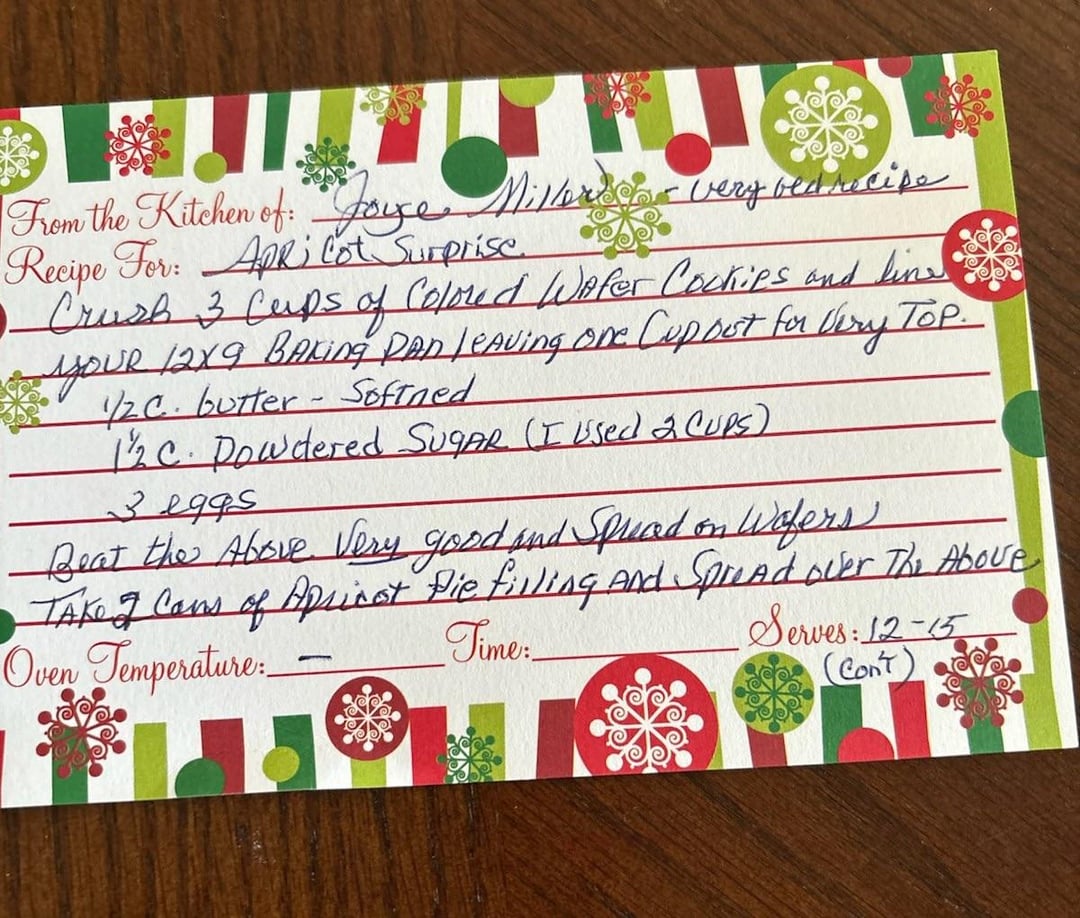 From the Kitchen of: Joyce Miller - very old recipe
Recipe For: Apricot Surprise
Crush 3 Cups of Colored Wafer Cookies and line
your 12x9 Baking pan leaving one Cup out for Very Top.
1/2 C. butter - Softned
1 1/2 C. Powdered Sugar (I used 2 cups)
3 eggs
Beat the Above Very good and Spread on Wafers
Take 2 Cans of Apricot Pie filling and Spread over The Above
Oven Temperature: - Time: Serves: 12-15
(Con't)